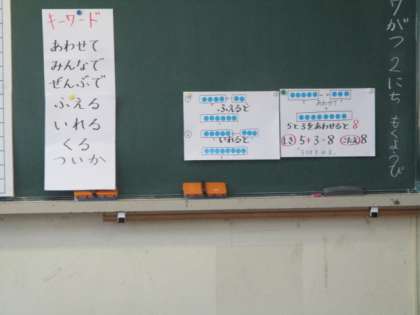 キーワード
あわせて
みんなで
ぜんぶで
ふえる
いれる
くる
ついか
ふえると
いれると
あわせて
5と3をあわせると 8
しき 5+3=8 こたえ 8
7がつ 2にち もくようび